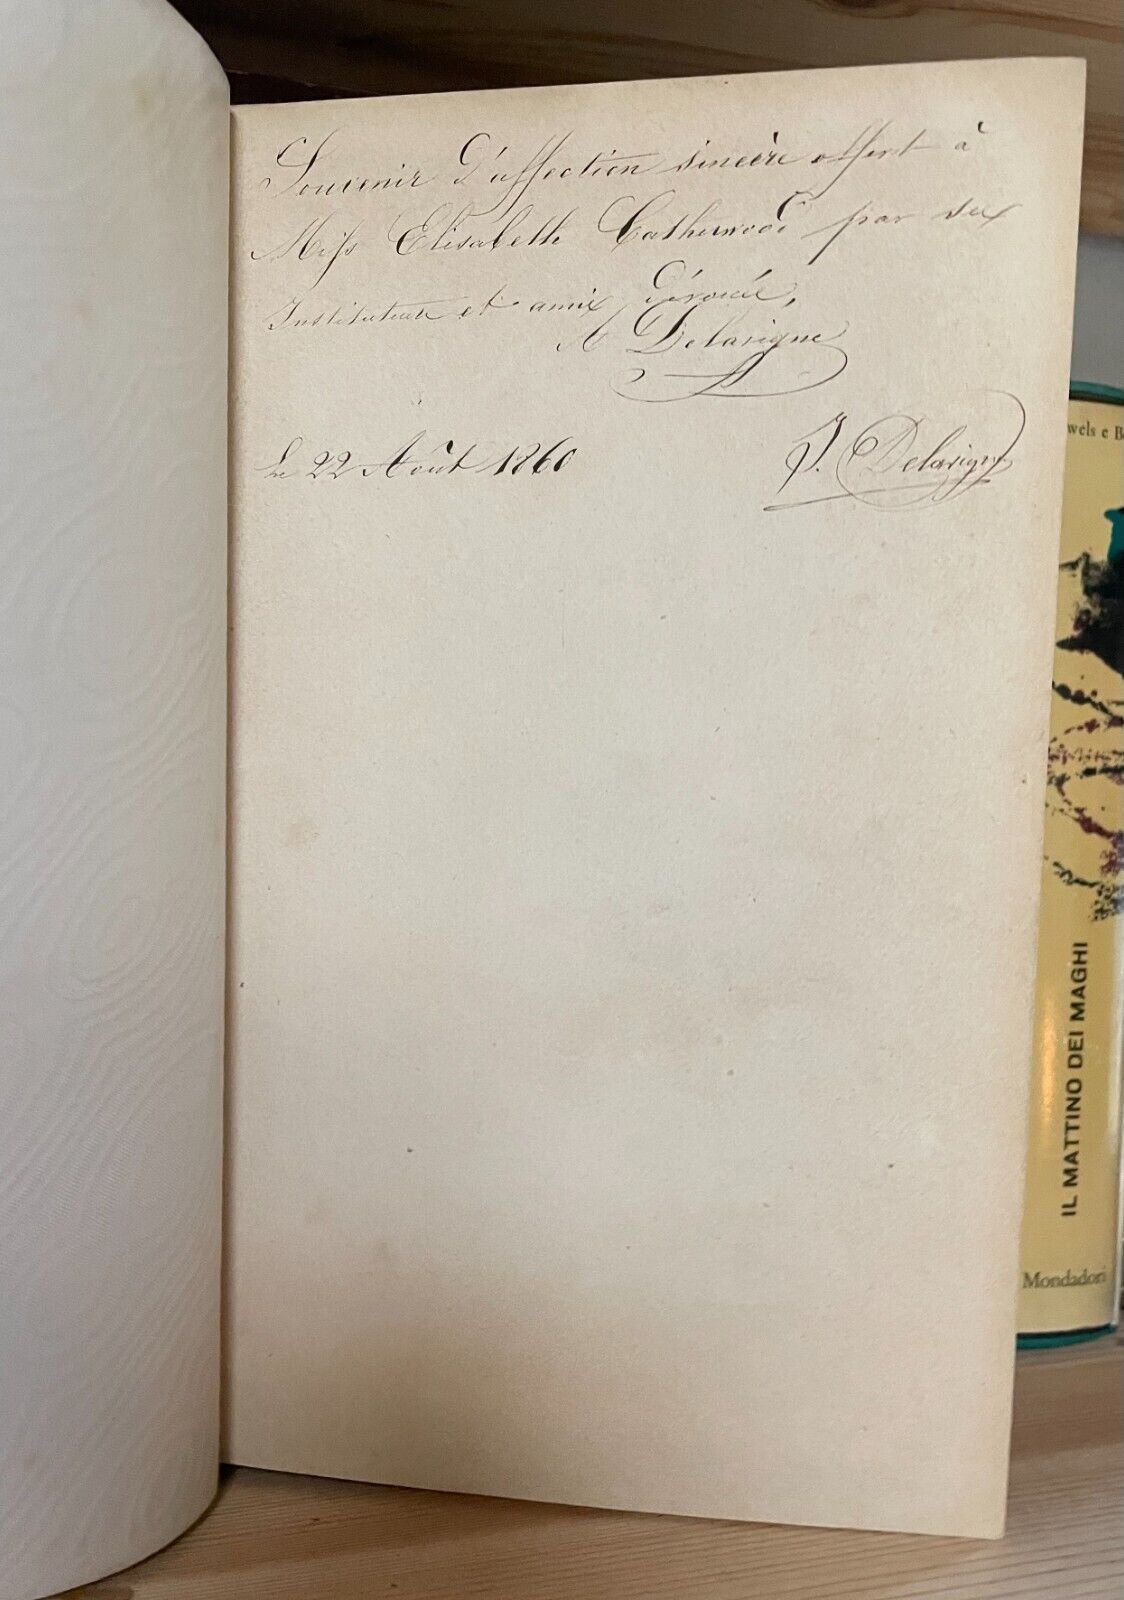 Souvenir d'affection sincère offert à
Miss Elisabeth Catherwood par ses
Instituteurs et amis dévoués,
A Delavigne
Le 22 Août 1860
J. Delavigne
wels e B
IL MATTINO DEI MAGHI
Mondadori